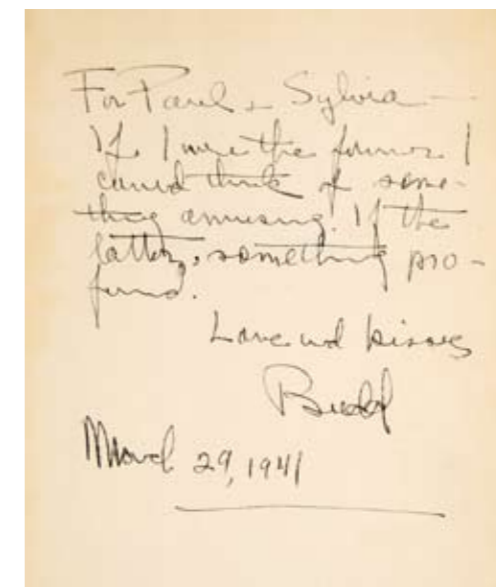 For Paul + Sylvia —
If I were the former I
could think of some-
thing amusing. If the
latter, something pro-
found.
Love and kisses
Budd
March 29, 1941